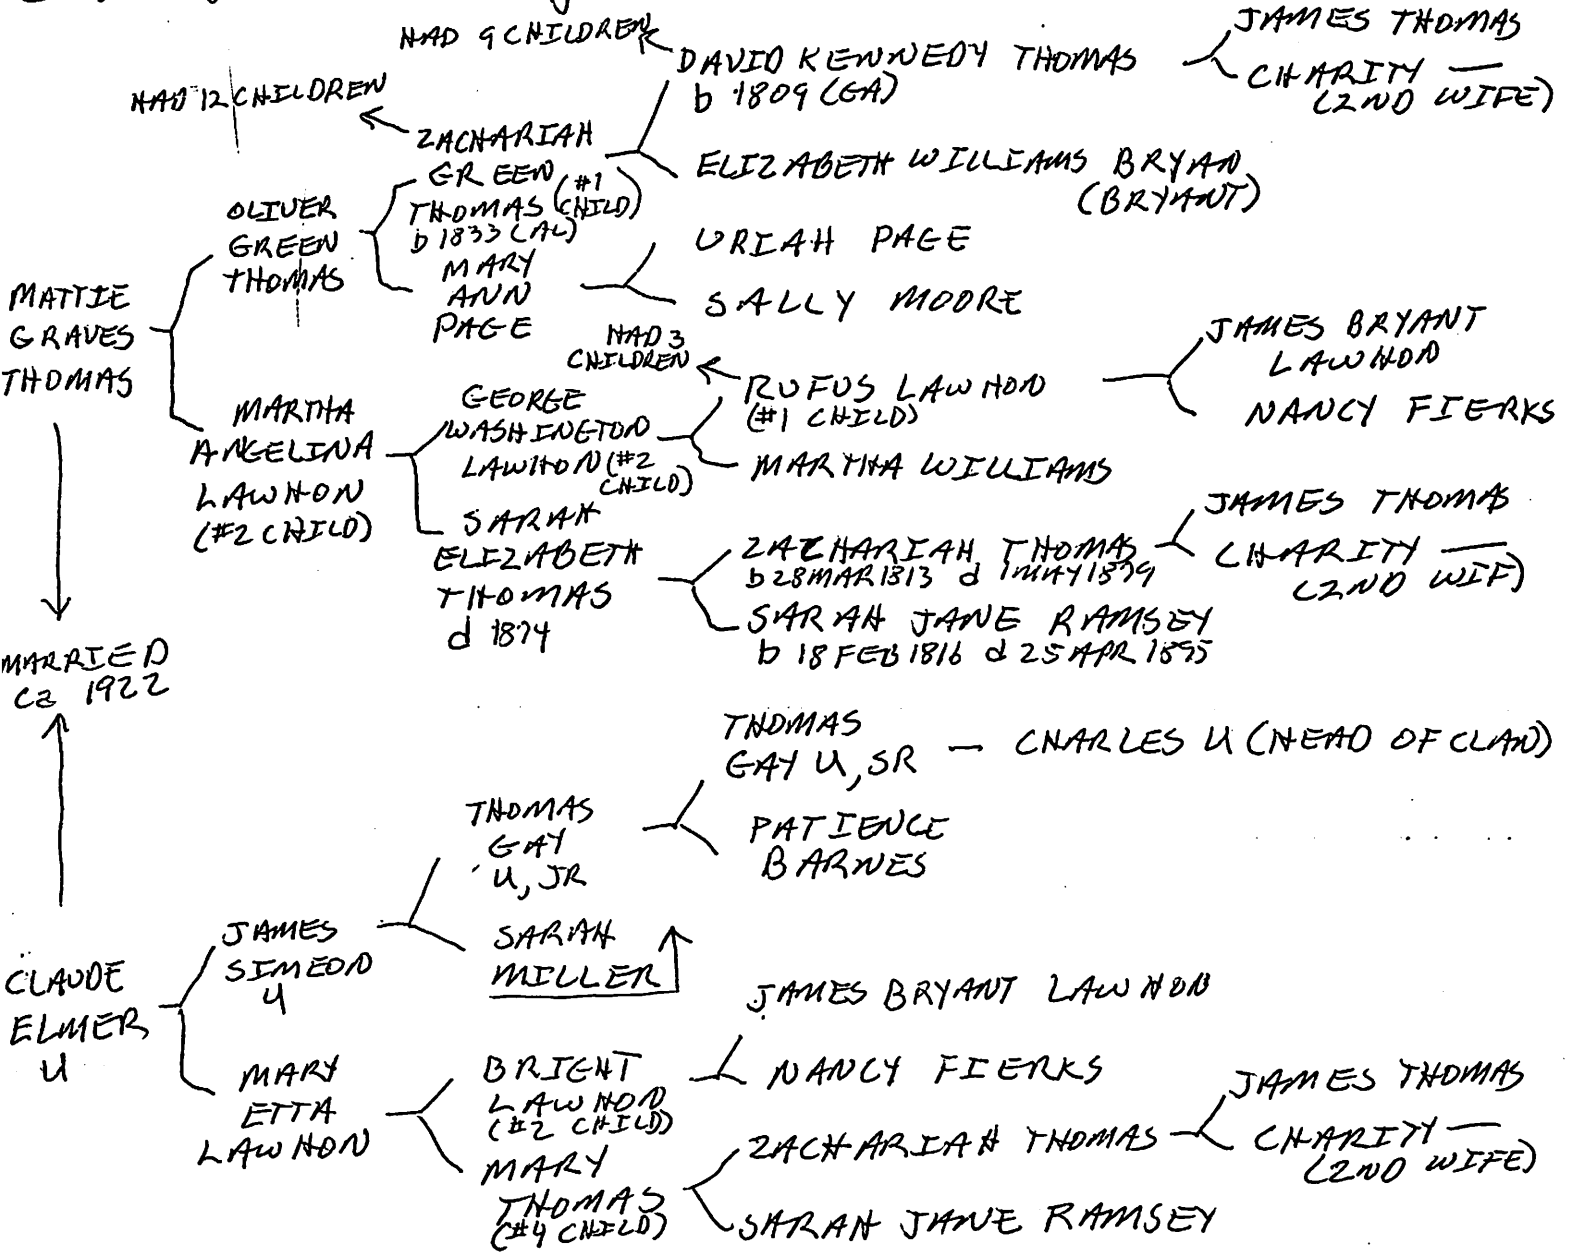 HAD 9 CHILDREN
HAD 12 CHILDREN
DAVID KENNEDY THOMAS
b 1809 (GA)
JAMES THOMAS
CHARITY —
(2ND WIFE)
ZACHARIAH
GREEN (#1
THOMAS CHILD)
b 1833 (AL)
ELIZABETH WILLIAMS BRYAN
(BRYANT)
OLIVER
GREEN
THOMAS
MARY
ANN
PAGE
URIAH PAGE
SALLY MOORE
MATTIE
GRAVES
THOMAS
HAD 3
CHILDREN
RUFUS LAWHON
(#1 CHILD)
JAMES BRYANT
LAWHON
NANCY FIERKS
MARTHA
ANGELINA
LAWHON
(#2 CHILD)
GEORGE
WASHINGTON
LAWHON (#2
CHILD)
MARTHA WILLIAMS
SARAH
ELIZABETH
THOMAS
d 1874
ZACHARIAH THOMAS
b 28 MAR 1813 d 1 MAY 1879
JAMES THOMAS
CHARITY —
(2ND WIF)
SARAH JANE RAMSEY
b 18 FEB 1816 d 25 APR 1895
MARRIED
ca 1922
THOMAS
GAY U, SR — CHARLES U (HEAD OF CLAN)
THOMAS
GAY
U, JR
PATIENCE
BARNES
JAMES
SIMEON
U
SARAH
MILLER
CLAUDE
ELMER
U
JAMES BRYANT LAWHON
MARY
ETTA
LAWHON
BRIGHT
LAWHON
(#2 CHILD)
NANCY FIERKS
MARY
THOMAS
(#4 CHILD)
ZACHARIAH THOMAS
JAMES THOMAS
CHARITY —
(2ND WIFE)
SARAH JANE RAMSEY